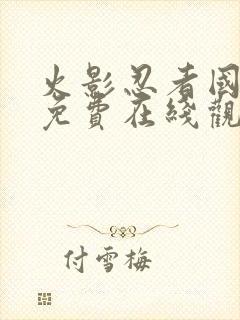 火影忍者国
免費在綫觀
付雪梅